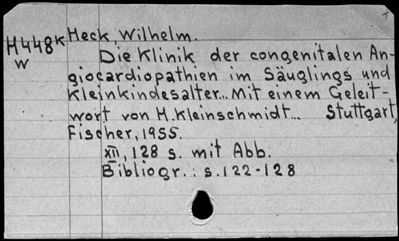 H448k Heck, Wilhelm.
W Die Klinik der congenitalen An-
giocardiopathien im Säuglings und
Kleinkindesalter... Mit einem Geleit-
wort von H. Kleinschmidt... Stuttgart,
Fischer, 1955.
XII, 128 s. mit Abb.
Bibliogr.: s. 122-128